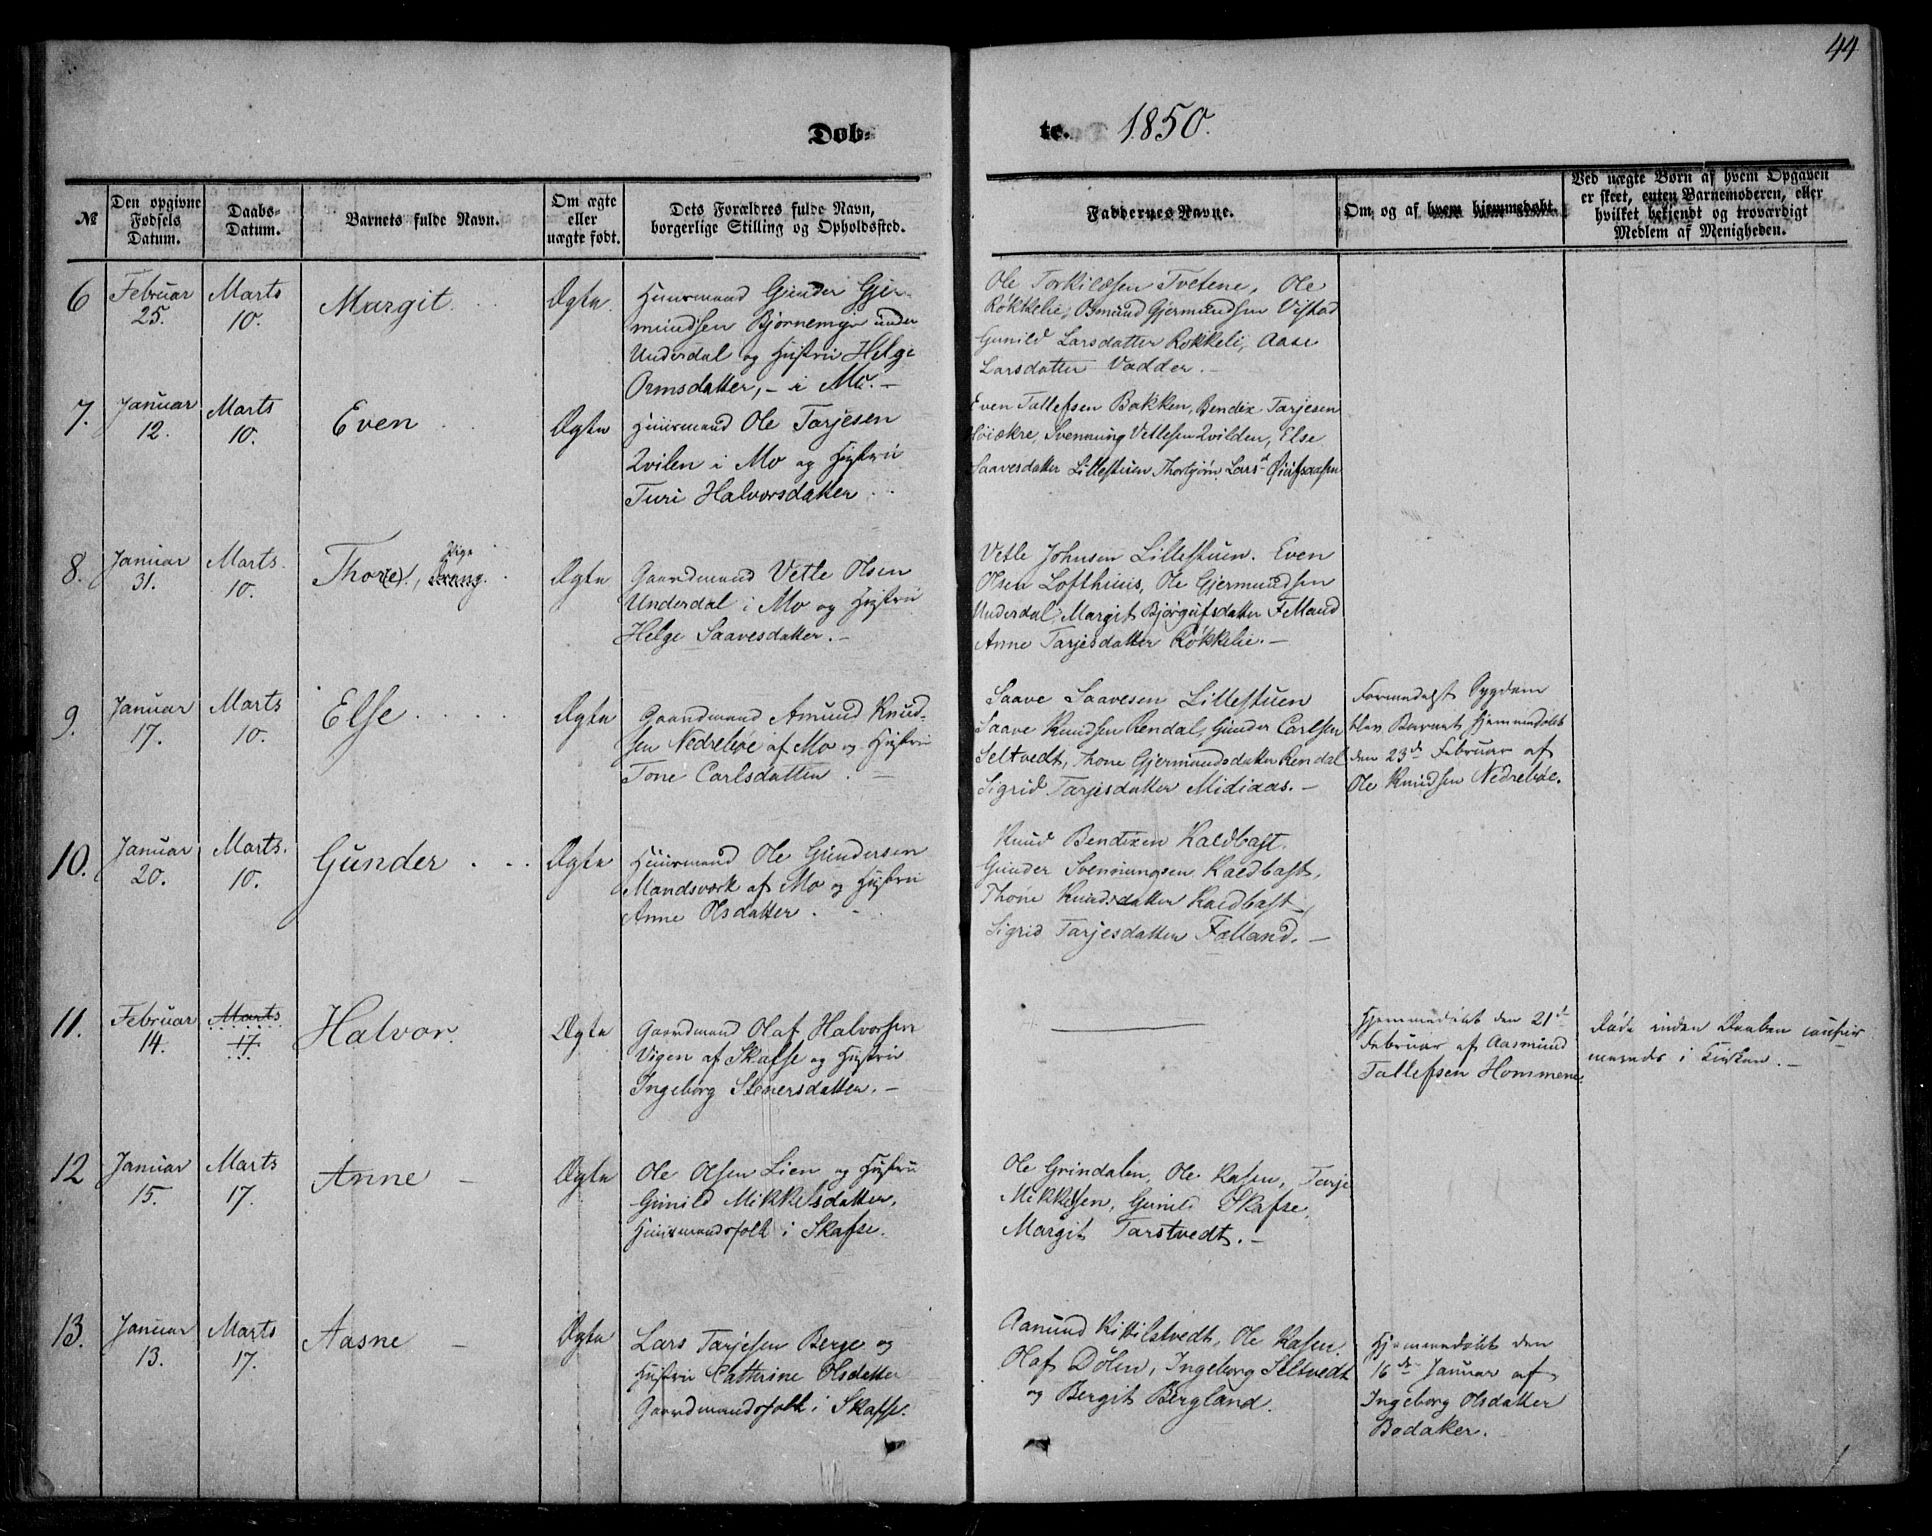 44
Døb-
te. 1850.
№
Den opgivne
Fødsels
Datum.
Daabs-
Datum.
Barnets fulde Navn.
Om ægte
eller
uægte født.
Dets Forældres fulde Navn,
borgerlige Stilling og Opholdssted.
Faddernes Navne.
Om og af hvem hjemmedøbt.
Ved uægte Børn af hvem Opgaven
er skeet, enten Barnemoderen, eller
hvilket bekjendt og troværdigt
Medlem af Menigheden.
6
Februar
25.
Marts
10.
Margit.
Ægte
Huusmand Gunder Gjer-
mundsen Bjørnemyr under
Underdal og Hustru Helge
Ormsdatter, - i Mo. -
Ole Torkildsen Tvetene, Ole
Røkkelie, Osmund Gjermundsen Vistad
Gunild Larsdatter Røkkeli, Aase
Larsdatter Vadder. -
7.
Januar
12.
Marts
10.
Even
Ægte
Huusmand Ole Tarjesen
Qvilen i Mo og Hustru
Turi Halvorsdatter
Even Tallefsen Bakken, Bendix Tarjesen
Høiækre, Svennung Vetlesen Qvilden, Else
Saavesdatter Lillestuen Thorbjørn Larsd
8.
Januar
31.
Marts.
10.
Thor(e)., Pige
Ægte
Gaardmand Vetle Olsen
Underdal i Mo og Hustru
Helge Saavesdatter. -
Vetle Johnsen Lillestuen. Even
Olsen Lofthuus, Ole Gjermundsen
Underdal, Margit Bjørgufsdatter Felland
Anne Tarjesdatter Røkkelie. -
9.
Januar
17.
Marts
10.
Else
Ægte
Gaardmand Amund Knud-
sen Nedrebøe af Mo og Hustru
Tone Carlsdatter. -
Saave Saavesen Lillestuen
Saave Knudsen Rendal, Gunder Carlsen
Seltvedt, Thone Gjermundsdatter Rendal
Sigrid Tarjesdatter Midiaas. -
Formedelst Sygdom
blev Barnet hjemmedøbt
den 23de Februar af
Ole Knudsen Nedrebøe.
10.
Januar
20.
Marts.
10.
Gunder
Ægte
Huusmand Ole Gundersen
Mandsværk af Mo og Hustru
Anne Olsdatter.
Knud Bendixen Kaldbast.
Gunder Svennungsen Kaldbast,
Thone Knudsdatter Kaldbast,
Sigrid Tarjesdatter Fælland. -
11.
Februar
14.
Marts
17.
Halvor.
Ægte
Gaardmand Olaf Halvorsen
Vigen af Skafse og Hustru
Ingeborg Stenersdatter. -
Hjemmedøbt den 21de
Februar af Aasmund
Tallefsen Hommene.
Døde inden Daaben confir
merede i Kirken. -
12
Januar
15.
Marts
17.
Anne -
Ægte
Ole Olsen Lien og Hustru
Gunild Mikkelsdatter,
Huusmandsfolk i Skafse.
Ole Grindalen, Ole Kasen, Tarje
Mikkelsen, Gunild Skafse,
Margit Tarstvedt. -
13.
Januar
13.
Marts
17.
Aasne -
Ægte
Lars Tarjesen Berge og
Hustru Catthrine Olsdatter
Gaardmandsfolk i Skafse.
Aamund Kittilstvedt, Ole Kasen.
Olaf Dølen, Ingeborg Seltvedt
og Bergit Bergland.
Hjemmedøbt den
16de Januar af
Ingeborg Olsdatter
Bødaker.